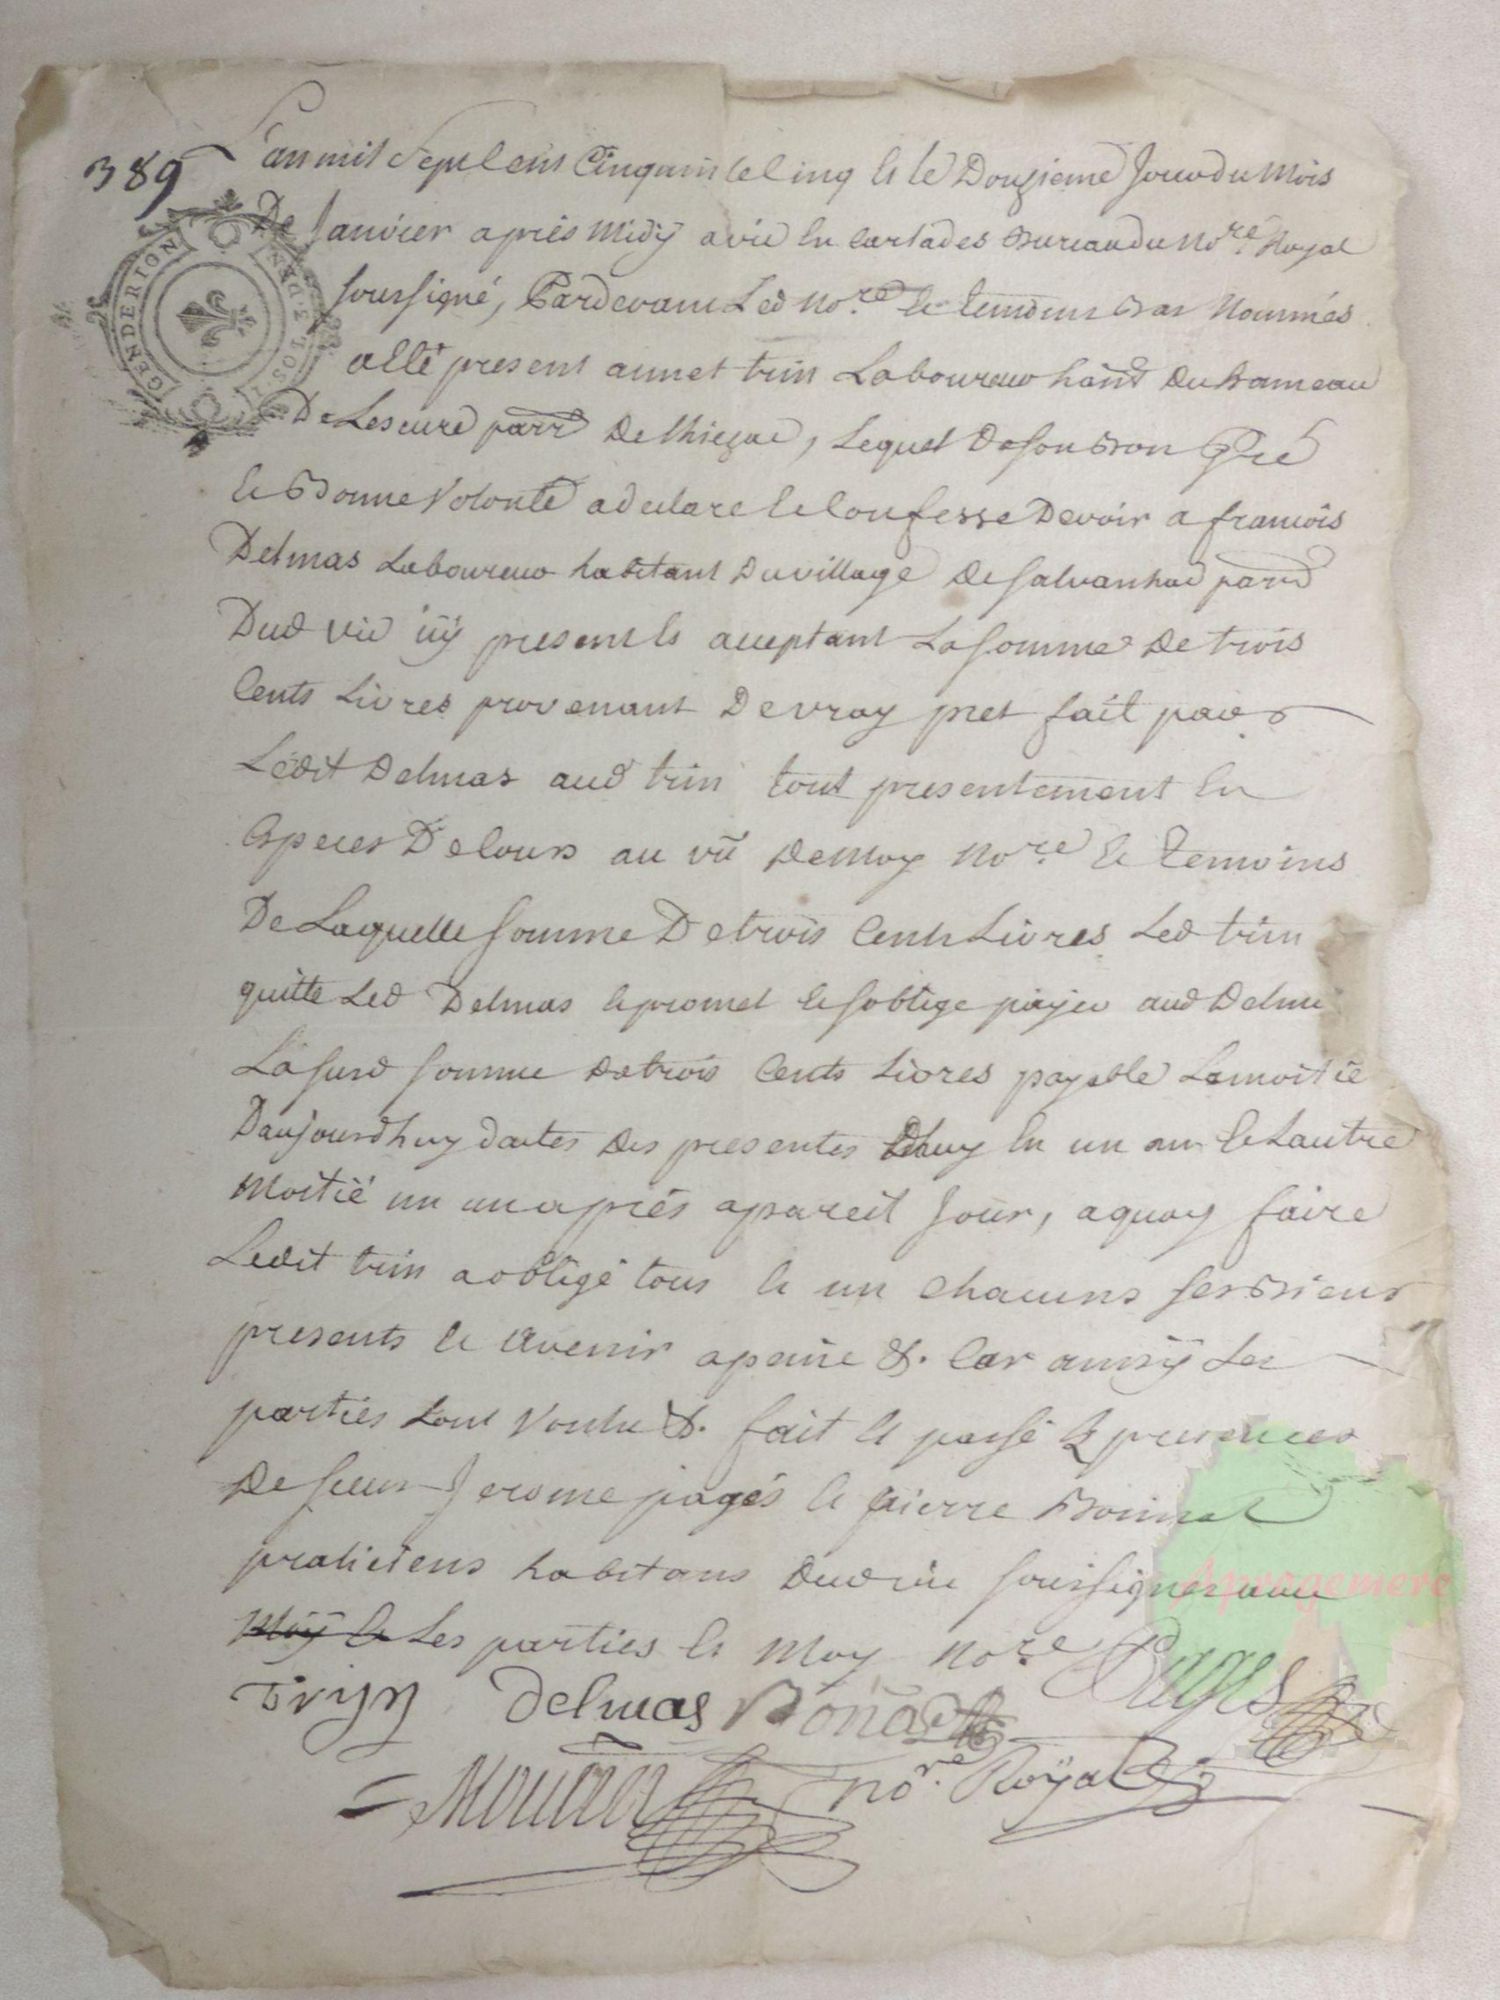 389
L'an mil sept cent cinquante cinq et le Douzieme Jour du Mois
De Janvier après Midy a vic en carlades Bureau du No.re Royal
soussigné, Pardevant Led No.re et temoins bas Nommés
GENDERION
2. SOLS
a eté present annet trin Laboureur hānt Du hameau
De Lescure parr De thiezac, Lequel De son Bon Gré
et Bonne Volonté a declaré et confesse Devoir a francois
Delmas Laboureur habitant Du village De Salvanhac parr
Dud vic icy present et acceptant La somme De trois
Cents Livres provenant De vray pret fait par
Ledit Delmas aud trin tout presentement en
Especes De cours au vû De Moy No.re et temoins
De Laquelle somme De trois Cents Livres Led trin
quitte Led Delmas et promet et soblige payer aud Delm
La susd somme De trois Cents Livres payable La moitié
D'aujourdhuy dattes Des presentes en un an et Lautre
Moitié un an aprés a pareil Jour, a quoy faire
Ledit trin a obligé tous et un chacuns ses Biens
presents et Avenir a peine &. Car ainsy Les
parties Lont Voulu &. fait et passé Es presences
De sieurs Jerome pagés et pierre Bonnet
praticiens habitans Dud vic soussignés avec
Moy et Les parties et Moy No.re Pages
Tryn Delmas Bonnet
No.re Royal
Apragemere